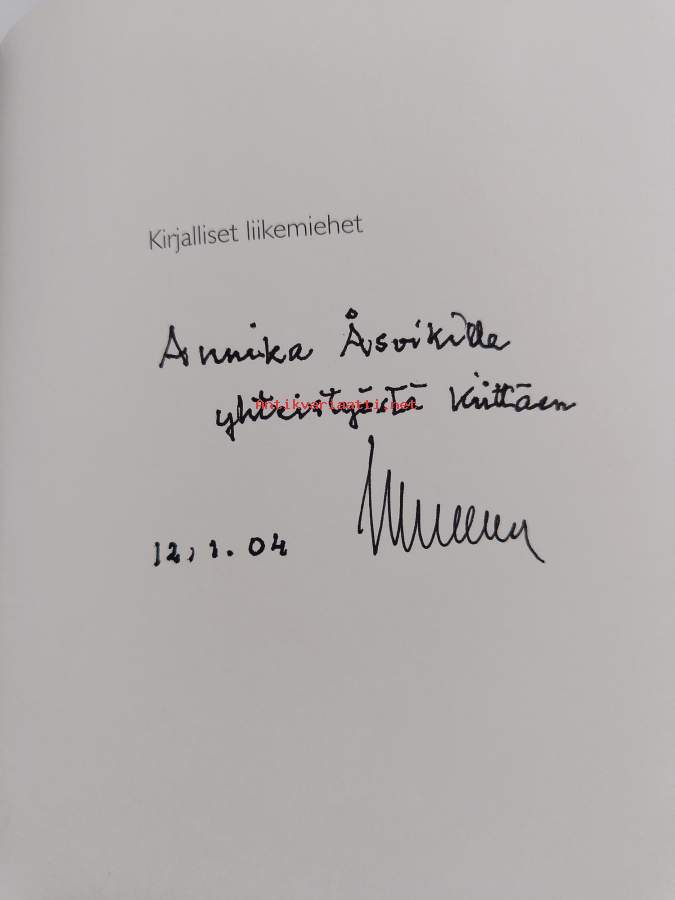 Kirjalliset liikemiehet
Annika Åsvikille
yhteistyöstä kiittäen
Antikvariaatti.net
12.1.04